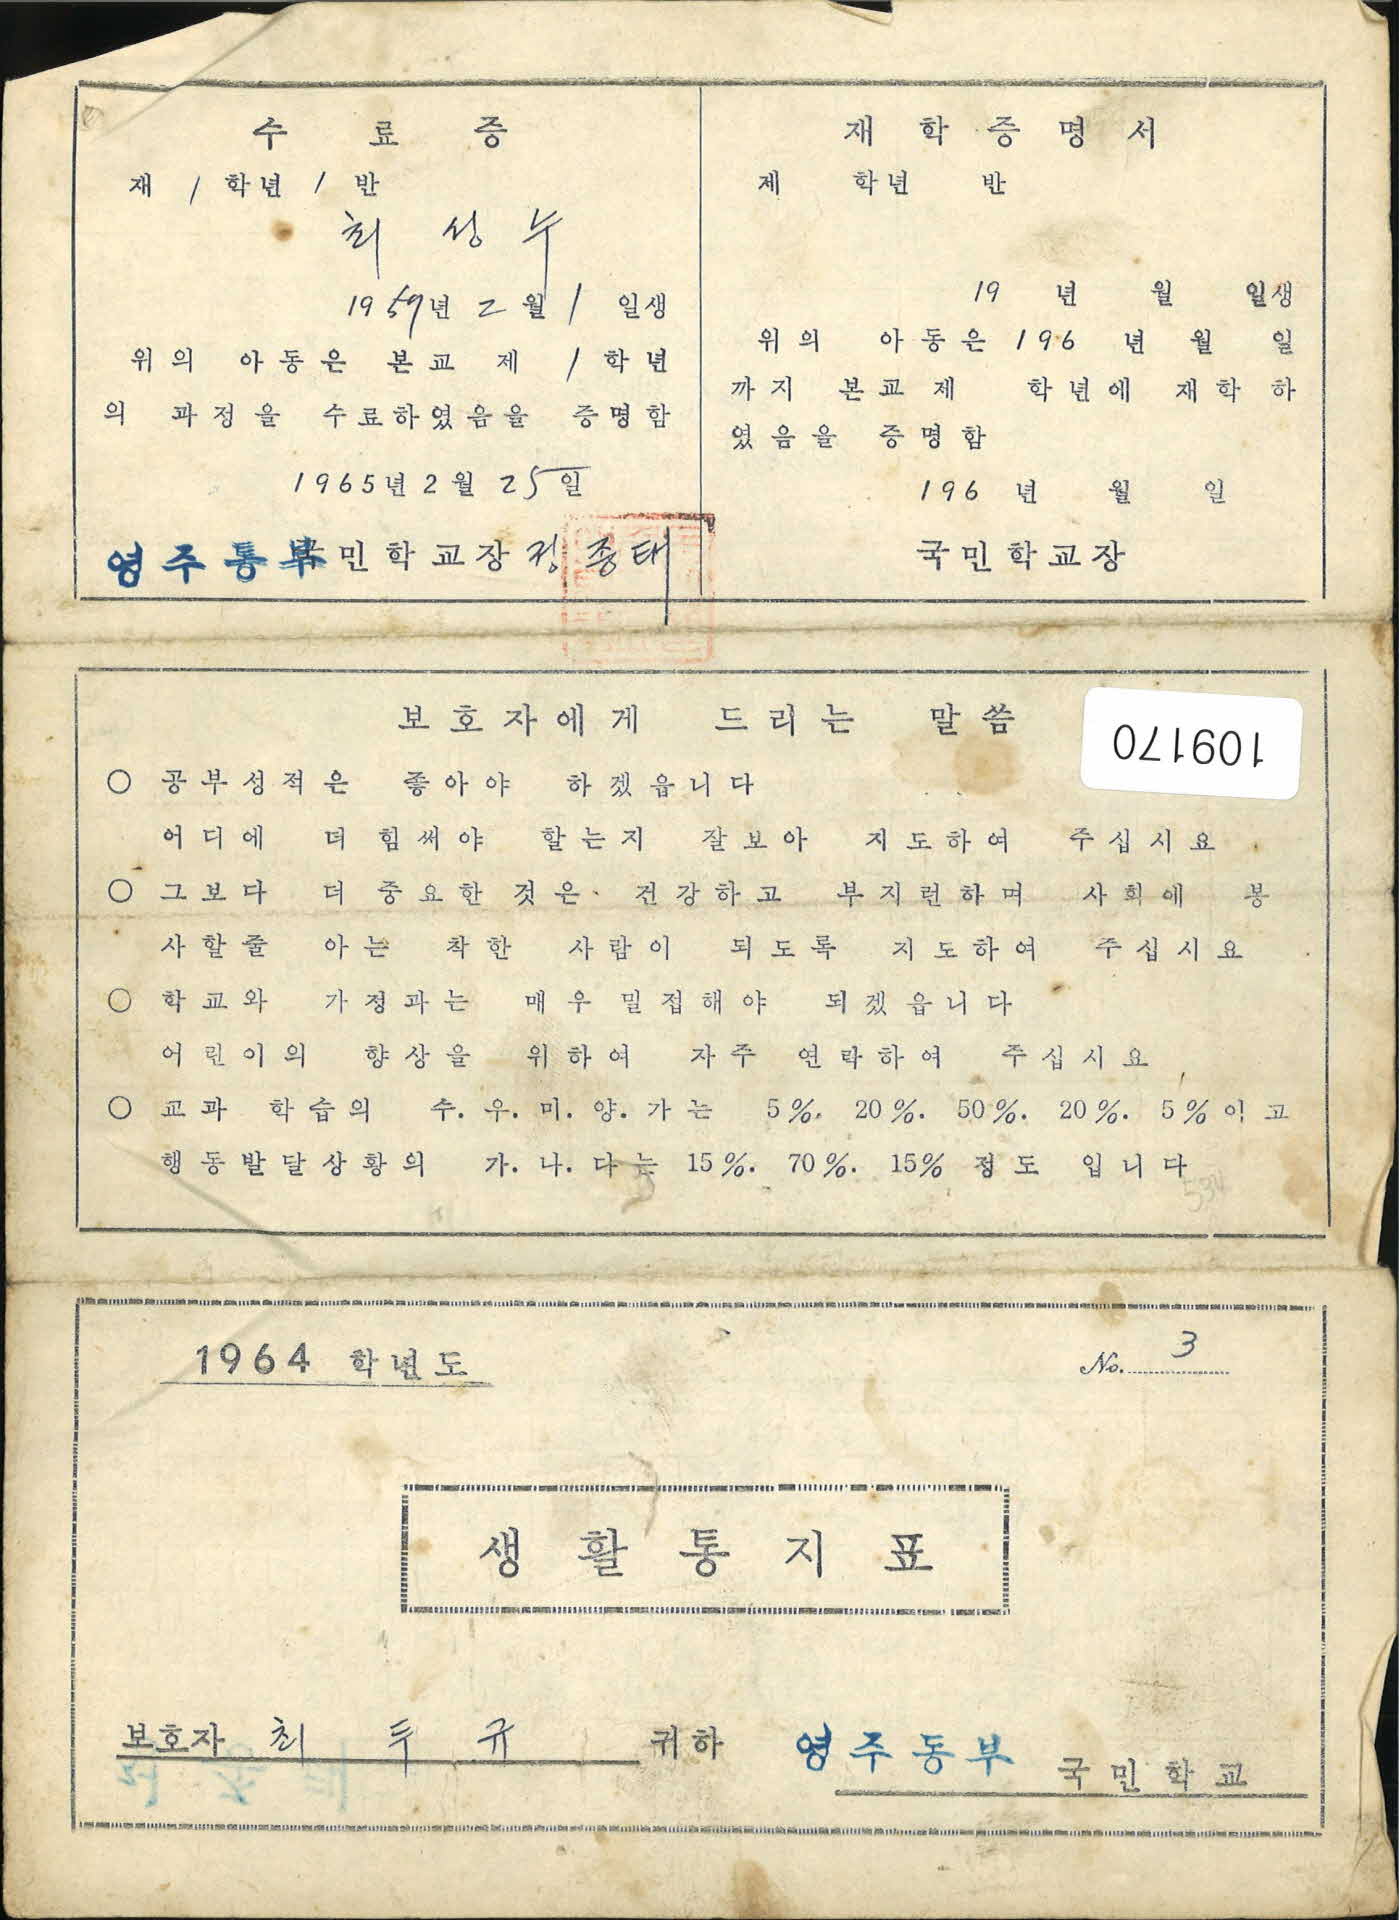 수료증
재 1 학년 1 반
최성두
1959년 2월 1일생
위의 아동은 본교 제 1학년
의 과정을 수료하였음을 증명함
1965년 2월 25일
영주동부국민학교장 정종태
재학증명서
제 학년 반
19 년 월 일생
위의 아동은 196 년 월 일
까지 본교 제 학년에 재학하
였음을 증명함
196 년 월 일
국민학교장
보호자에게 드리는 말씀
109170
○ 공부성적은 좋아야 하겠읍니다
어디에 더 힘써야 할는지 잘보아 지도하여 주십시요
○ 그보다 더 중요한 것은 건강하고 부지런하며 사회에 봉
사할줄 아는 착한 사람이 되도록 지도하여 주십시요
○ 학교와 가정과는 매우 밀접해야 되겠읍니다
어린이의 향상을 위하여 자주 연락하여 주십시요
○ 교과 학습의 수. 우. 미. 양. 가는 5%. 20%. 50%. 20%. 5%이고
행동발달상황의 가. 나. 다는 15%. 70%. 15% 정도 입니다
1964 학년도
No. 3
생활통지표
보호자 최두규 귀하
영주동부 국민학교